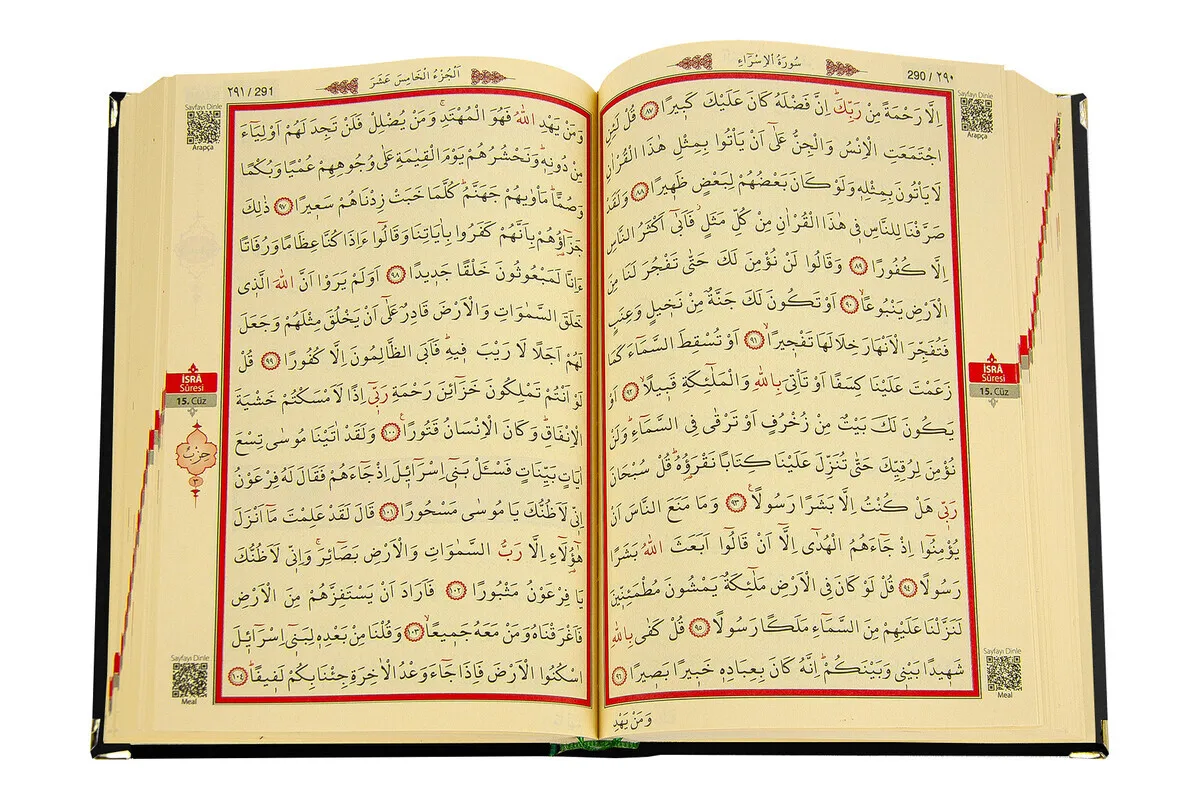 سُورَةُ الْاِسْرَاءِ
290 / ٢٩٠
اِلَّا رَحْمَةً مِنْ رَبِّكَۜ اِنَّ فَضْلَهُ كَانَ عَلَيْكَ كَب۪يرًا ﴿٨٧﴾ قُلْ لَئِنِ
اجْتَمَعَتِ الْاِنْسُ وَالْجِنُّ عَلٰٓى اَنْ يَأْتُوا بِمِثْلِ هٰذَا الْقُرْاٰنِ
لَا يَأْتُونَ بِمِثْلِه۪ وَلَوْ كَانَ بَعْضُهُمْ لِبَعْضٍ ظَه۪يرًا ﴿٨٨﴾ وَلَقَدْ
صَرَّفْنَا لِلنَّاسِ ف۪ي هٰذَا الْقُرْاٰنِ مِنْ كُلِّ مَثَلٍۘ فَاَبٰٓى اَكْثَرُ النَّاسِ
اِلَّا كُفُورًا ﴿٨٩﴾ وَقَالُوا لَنْ نُؤْمِنَ لَكَ حَتّٰى تَفْجُرَ لَنَا مِنَ
الْاَرْضِ يَنْبُوعًاۙ ﴿٩٠﴾ اَوْ تَكُونَ لَكَ جَنَّةٌ مِنْ نَخ۪يلٍ وَعِنَبٍ
فَتُفَجِّرَ الْاَنْهَارَ خِلَالَهَا تَفْج۪يرًاۙ ﴿٩١﴾ اَوْ تُسْقِطَ السَّمَٓاءَ كَمَا
زَعَمْتَ عَلَيْنَا كِسَفًا اَوْ تَأْتِيَ بِاللّٰهِ وَالْمَلٰٓئِكَةِ قَب۪يلًاۙ ﴿٩٢﴾ اَوْ
يَكُونَ لَكَ بَيْتٌ مِنْ زُخْرُفٍ اَوْ تَرْقٰى فِي السَّمَٓاءِۜ وَلَنْ
نُؤْمِنَ لِرُقِيِّكَ حَتّٰى تُنَزِّلَ عَلَيْنَا كِتَابًا نَقْرَؤُ۬هُۜ قُلْ سُبْحَانَ
رَبّ۪ي هَلْ كُنْتُ اِلَّا بَشَرًا رَسُولًا۟ ﴿٩٣﴾ وَمَا مَنَعَ النَّاسَ اَنْ
يُؤْمِنُٓوا اِذْ جَٓاءَهُمُ الْهُدٰٓى اِلَّٓا اَنْ قَالُٓوا اَبَعَثَ اللّٰهُ بَشَرًا
رَسُولًا ﴿٩٤﴾ قُلْ لَوْ كَانَ فِي الْاَرْضِ مَلٰٓئِكَةٌ يَمْشُونَ مُطْمَئِنّ۪ينَ
لَنَزَّلْنَا عَلَيْهِمْ مِنَ السَّمَٓاءِ مَلَكًا رَسُولًا ﴿٩٥﴾ قُلْ كَفٰى بِاللّٰهِ
شَه۪يدًا بَيْن۪ي وَبَيْنَكُمْۜ اِنَّهُ كَانَ بِعِبَادِه۪ خَب۪يرًا بَص۪يرًا ﴿٩٦﴾
وَمَنْ يَهْدِ
Sayfayı Dinle
Arapça
İSRÂ
Sûresi
15. Cüz
Sayfayı Dinle
Meal
اَلْجُزْءُ الْخَامِسَ عَشَرَ
٢٩١ / 291
وَمَنْ يَهْدِ اللّٰهُ فَهُوَ الْمُهْتَدِۚ وَمَنْ يُضْلِلْ فَلَنْ تَجِدَ لَهُمْ اَوْلِيَٓاءَ
مِنْ دُونِه۪ۜ وَنَحْشُرُهُمْ يَوْمَ الْقِيٰمَةِ عَلٰى وُجُوهِهِمْ عُمْيًا وَبُكْمًا
وَصُمًّاۜ مَأْوٰيهُمْ جَهَنَّمُۜ كُلَّمَا خَبَتْ زِدْنَاهُمْ سَع۪يرًا ﴿٩٧﴾ ذٰلِكَ
جَزَٓاؤُ۬هُمْ بِاَنَّهُمْ كَفَرُوا بِاٰيَاتِنَا وَقَالُٓوا ءَاِذَا كُنَّا عِظَامًا وَرُفَاتًا
ءَاِنَّا لَمَبْعُوثُونَ خَلْقًا جَد۪يدًا ﴿٩٨﴾ اَوَلَمْ يَرَوْا اَنَّ اللّٰهَ الَّذ۪ي
خَلَقَ السَّمٰوَاتِ وَالْاَرْضَ قَادِرٌ عَلٰٓى اَنْ يَخْلُقَ مِثْلَهُمْ وَجَعَلَ
لَهُمْ اَجَلًا لَا رَيْبَ ف۪يهِۜ فَاَبَى الظَّالِمُونَ اِلَّا كُفُورًا ﴿٩٩﴾ قُلْ
لَوْ اَنْتُمْ تَمْلِكُونَ خَزَٓائِنَ رَحْمَةِ رَبّ۪ٓي اِذًا لَاَمْسَكْتُمْ خَشْيَةَ
الْاِنْفَاقِۜ وَكَانَ الْاِنْسَانُ قَتُورًا۟ ﴿١٠٠﴾ وَلَقَدْ اٰتَيْنَا مُوسٰى تِسْعَ
اٰيَاتٍ بَيِّنَاتٍ فَسْـَٔلْ بَن۪ٓي اِسْرَٓائ۪لَ اِذْ جَٓاءَهُمْ فَقَالَ لَهُ فِرْعَوْنُ
اِنّ۪ي لَاَظُنُّكَ يَا مُوسٰى مَسْحُورًا ﴿١٠١﴾ قَالَ لَقَدْ عَلِمْتَ مَٓا اَنْزَلَ
هٰٓؤُ۬لَٓاءِ اِلَّا رَبُّ السَّمٰوَاتِ وَالْاَرْضِ بَصَٓائِرَۚ وَاِنّ۪ي لَاَظُنُّكَ
يَا فِرْعَوْنُ مَثْبُورًا ﴿١٠٢﴾ فَاَرَادَ اَنْ يَسْتَفِزَّهُمْ مِنَ الْاَرْضِ
فَاَغْرَقْنَاهُ وَمَنْ مَعَهُ جَم۪يعًاۙ ﴿١٠٣﴾ وَقُلْنَا مِنْ بَعْدِه۪ لِبَن۪ٓي اِسْرَٓائ۪لَ
اسْكُنُوا الْاَرْضَ فَاِذَا جَٓاءَ وَعْدُ الْاٰخِرَةِ جِئْنَا بِكُمْ لَف۪يفًاۜ ﴿١٠٤﴾
Sayfayı Dinle
Arapça
İSRÂ
Sûresi
15. Cüz
حزب
٣
Sayfayı Dinle
Meal